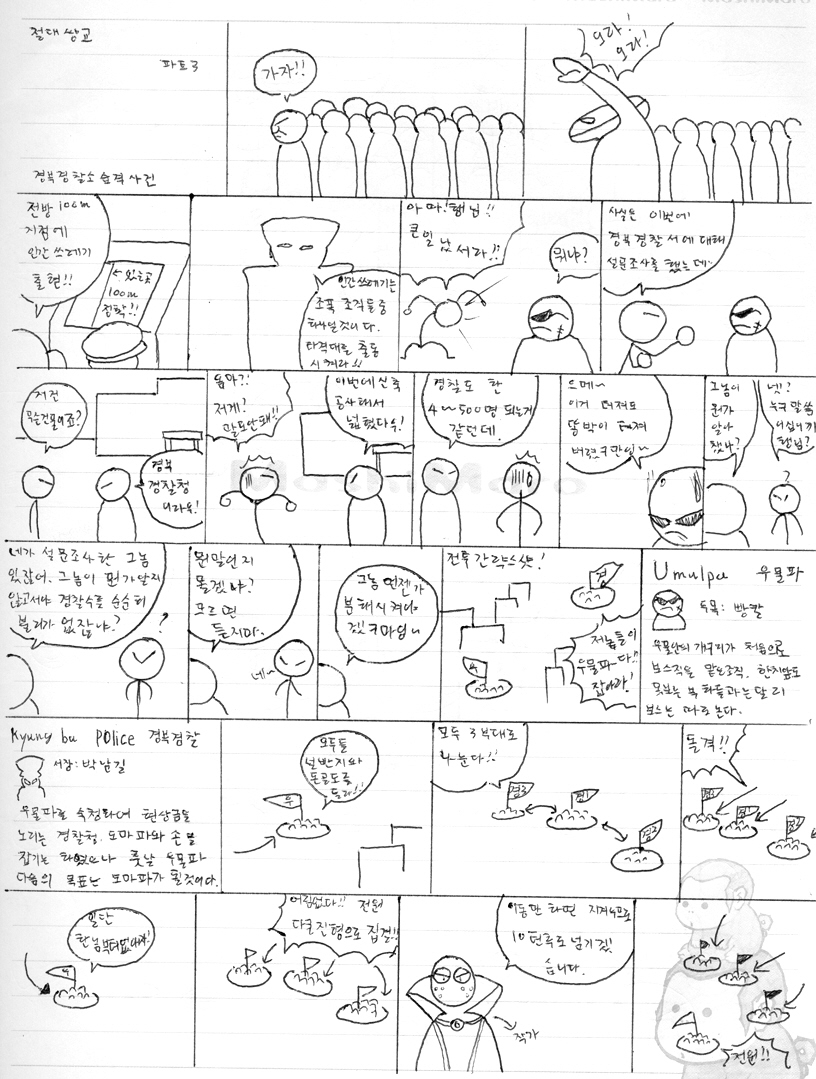 절대쌍교
파트3
경북경찰소 습격사건
가자!!
와라!
와라!
전방 100m
지점에
인간쓰레기
출현!!
← 있는곳
100m
정확!!
인간쓰레기는
조폭 조직들중
하나일것이다.
타격대를 출동
시켜라!!
아따! 햄님!!
큰일 났
서라!!
뭐냐?
사실은 이번에
경북경찰서에 대해
설문조사를 했는데~
저건
무슨건물이죠?
경북
경찰청
이라우!
음마?!
저게?
말도안돼!!
이번에 신축
공사해서
넓혔다우!
경찰도 한
4~500명 되는거
같던데.
으메~
이거
버렸구만잉~
그놈이
뭔가
알아
챘나?
넷?
햄님?
네가 설문조사한 그놈
있잖어. 그놈이 뭔가알지
않고서야 경찰수를 순순히
불리가 없잖냐?
뭔말인지
모르겠냐?
모르면
듣지마.
네~
그놈 언젠가
분해시켜버려야
겠구마잉~
전투 간략스샷!
경
우
저놈들이
우물파다!!
잡아라!
Umulpa 우물파
두목: 빵칼
우물안의 개구리가 처음으로
보스직을 맡은조직. 한치앞도
못보는 부하들과는 달리
보스는 따로논다.
Kyung bu Police 경북경찰
서장: 박남길
우물파를 숙청하여 현상금을
노리는 경찰청. 도마파와 손을
잡기는 하였으나 훗날 우물파
다음의 목표는 도마파가 될것이다.
우
모두들
돈골도를
들라!!
모두 3부대로
나눈다!!
경3
경1
경2
돌격!!
우
일단
어림없다!! 전원
진형으로 집결!!
이동만 하면 지겨우므로
10턴정도 넘기겠
습니다.
작가
전원!!